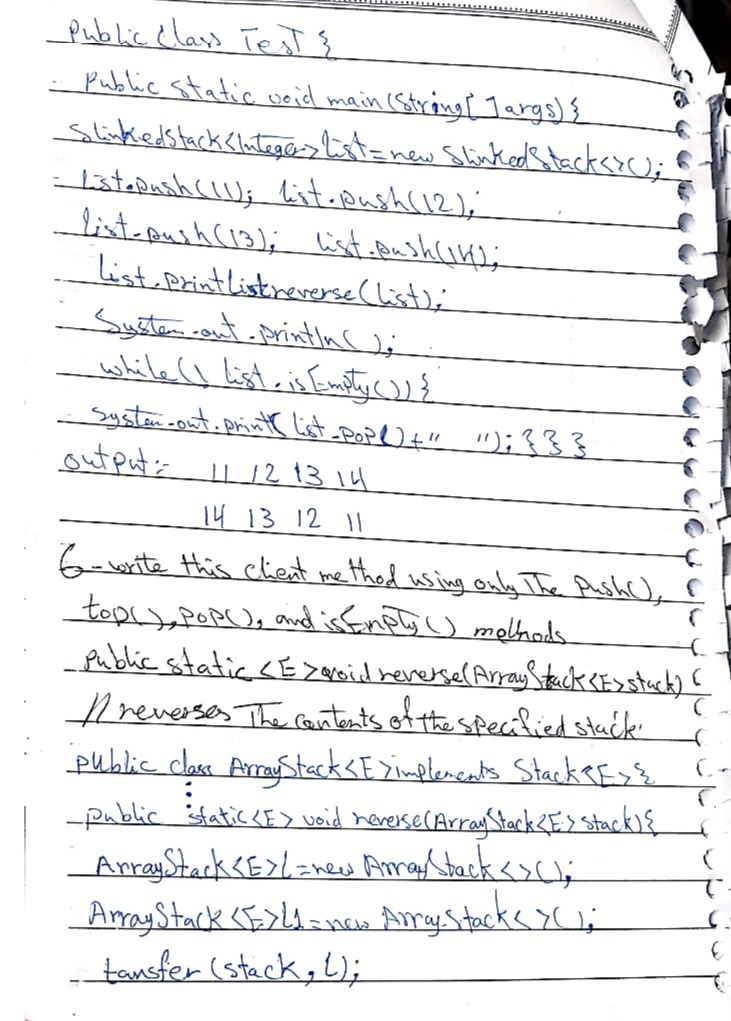 Public Class Test {
Public static void main(String[ ]args){
SlinkedStack<Integer>list=new SlinkedStack<>();
list.push(11); list.push(12);
list.push(13); list.push(14);
list.printlistreverse(list);
System.out.println( );
while(! list.isEmpty()){
System.out.print( list.pop()+" "); } } }
output:- 11 12 13 14
14 13 12 11
6-write this client method using only The push(),
top(), pop(), and isEmpty() methods
public static <E>void reverse(ArrayStack<E>stack)
// reverses The contents of the specified stack.
public class ArrayStack<E>implements Stack<E>{
⋮
public static<E> void reverse(ArrayStack<E>stack){
ArrayStack<E>L=new ArrayStack<>();
ArrayStack<E>L1=new ArrayStack<>();
tansfer(stack, L);